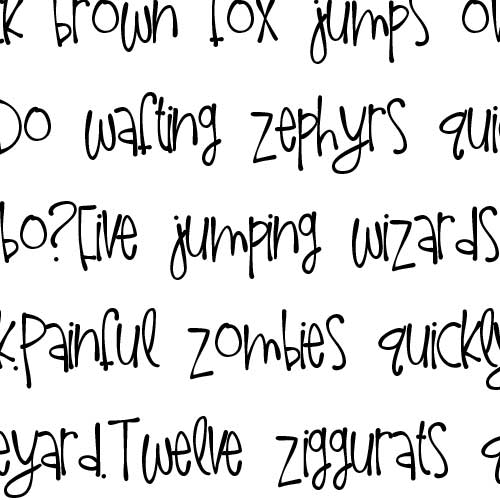 k brown fox jumps ov
Do wafting zephyrs qui
bo?Five jumping wizards
k.Painful zombies quickly
eyard.Twelve ziggurats q